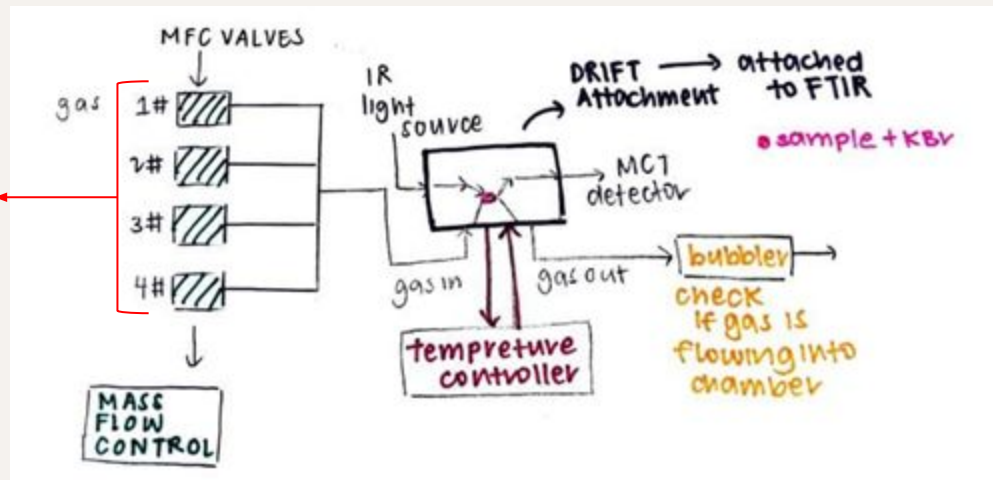 MFC VALVES
gas
1#
2#
3#
4#
MASS
FLOW
CONTROL
IR
light
source
DRIFT
Attachment
attached
to FTIR
sample + KBr
MCT
detector
gas in
gas out
tempreture
controller
bubbler
check
if gas is
flowing into
chamber